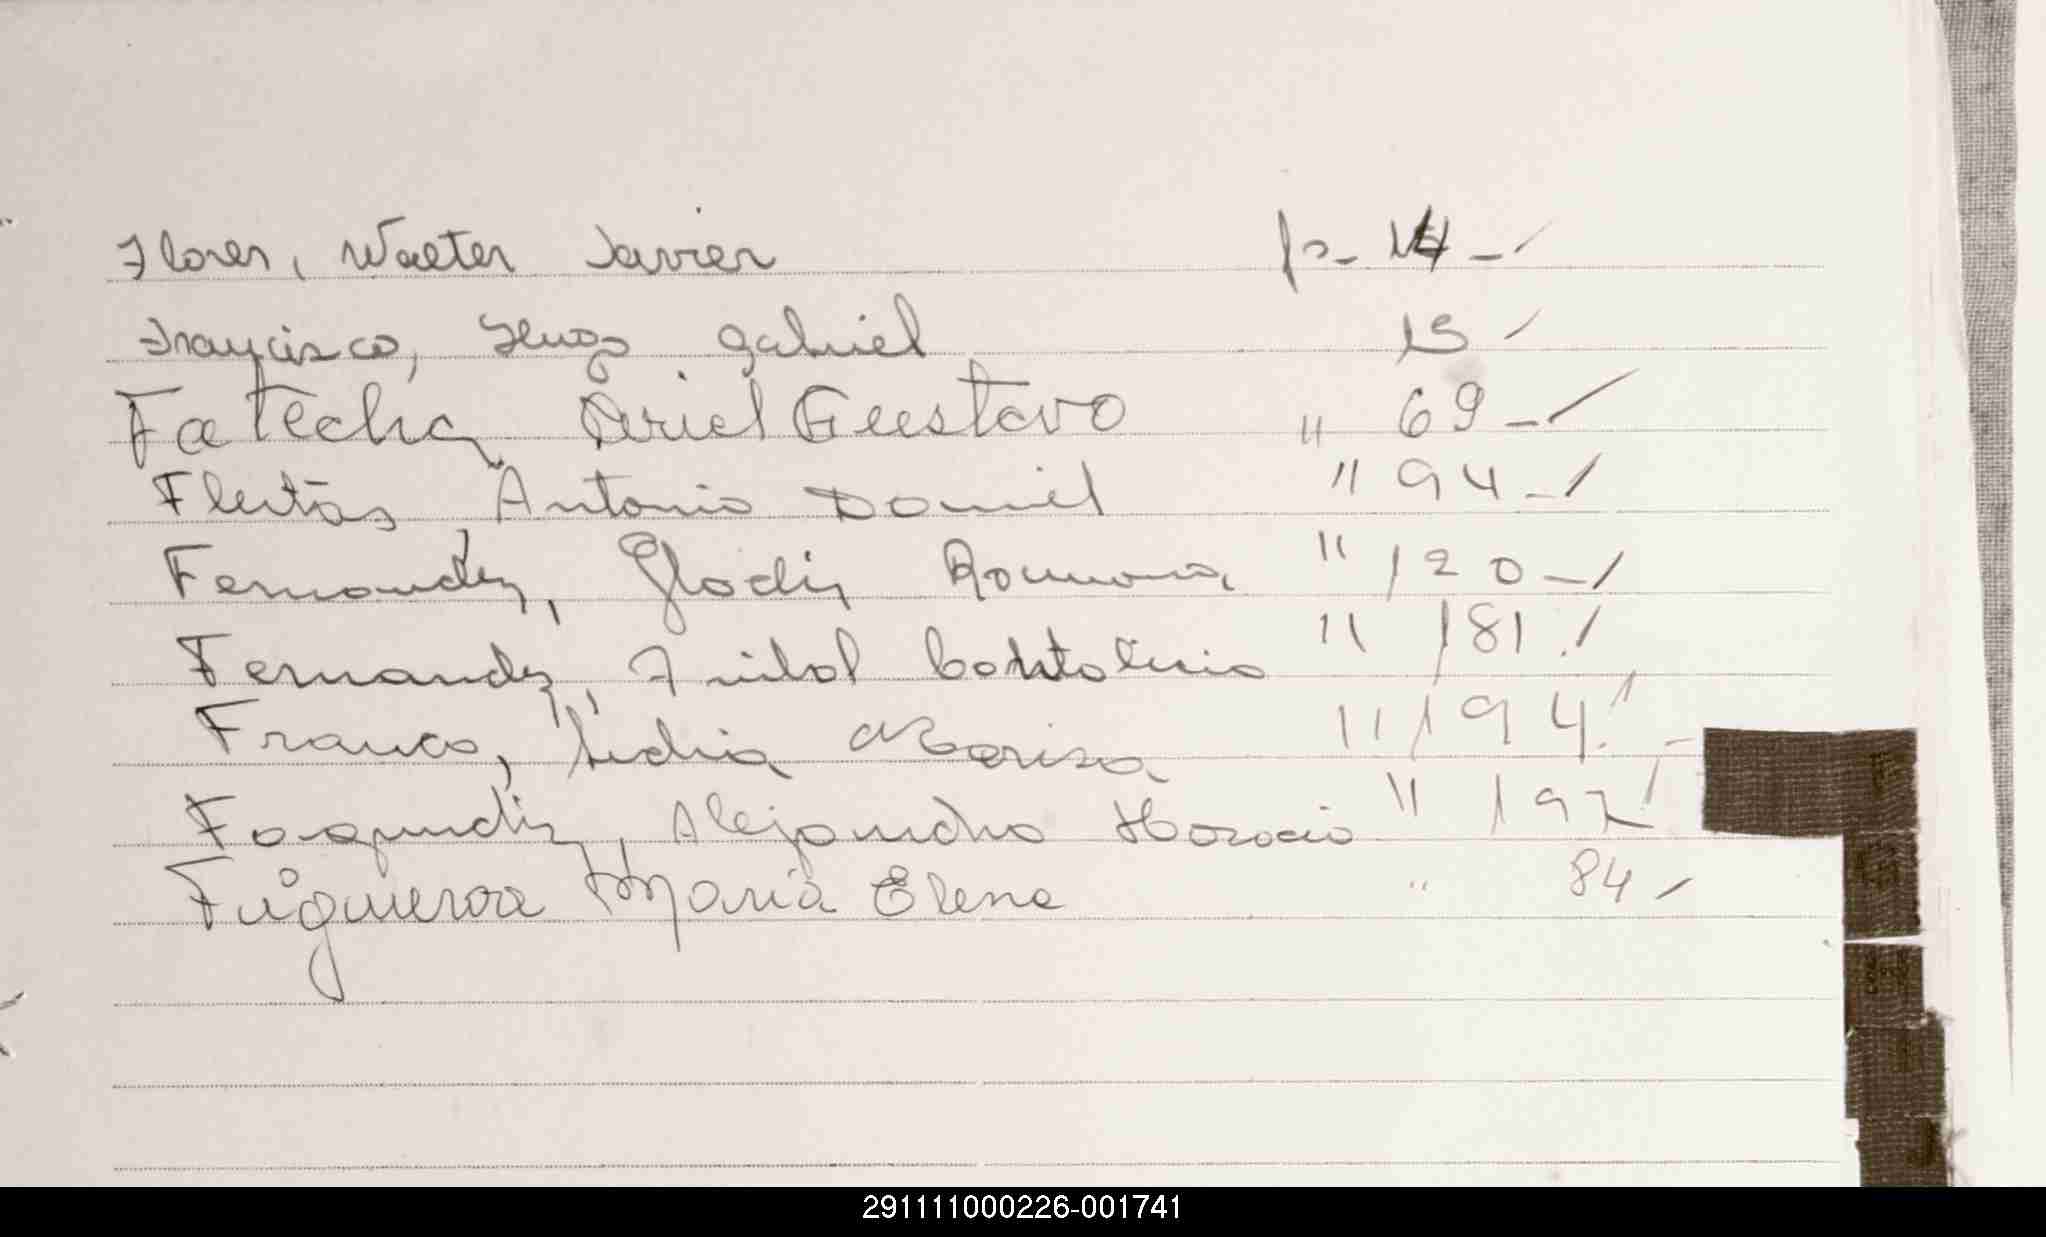 Flores, Walter Javier fs- 14 -
Francisco, Hugo Gabriel 15
Fatecha, Ariel Gustavo " 69 -
Fleitas Antonio Daniel " 94 -
Fernandez, Gladis Romona " 120 -
Fernandez, " 181
Franco, Lidia Marisa " 194
Alejandro Horacio " 192
Figueroa Maria Elena " 84 -
291111000226-001741